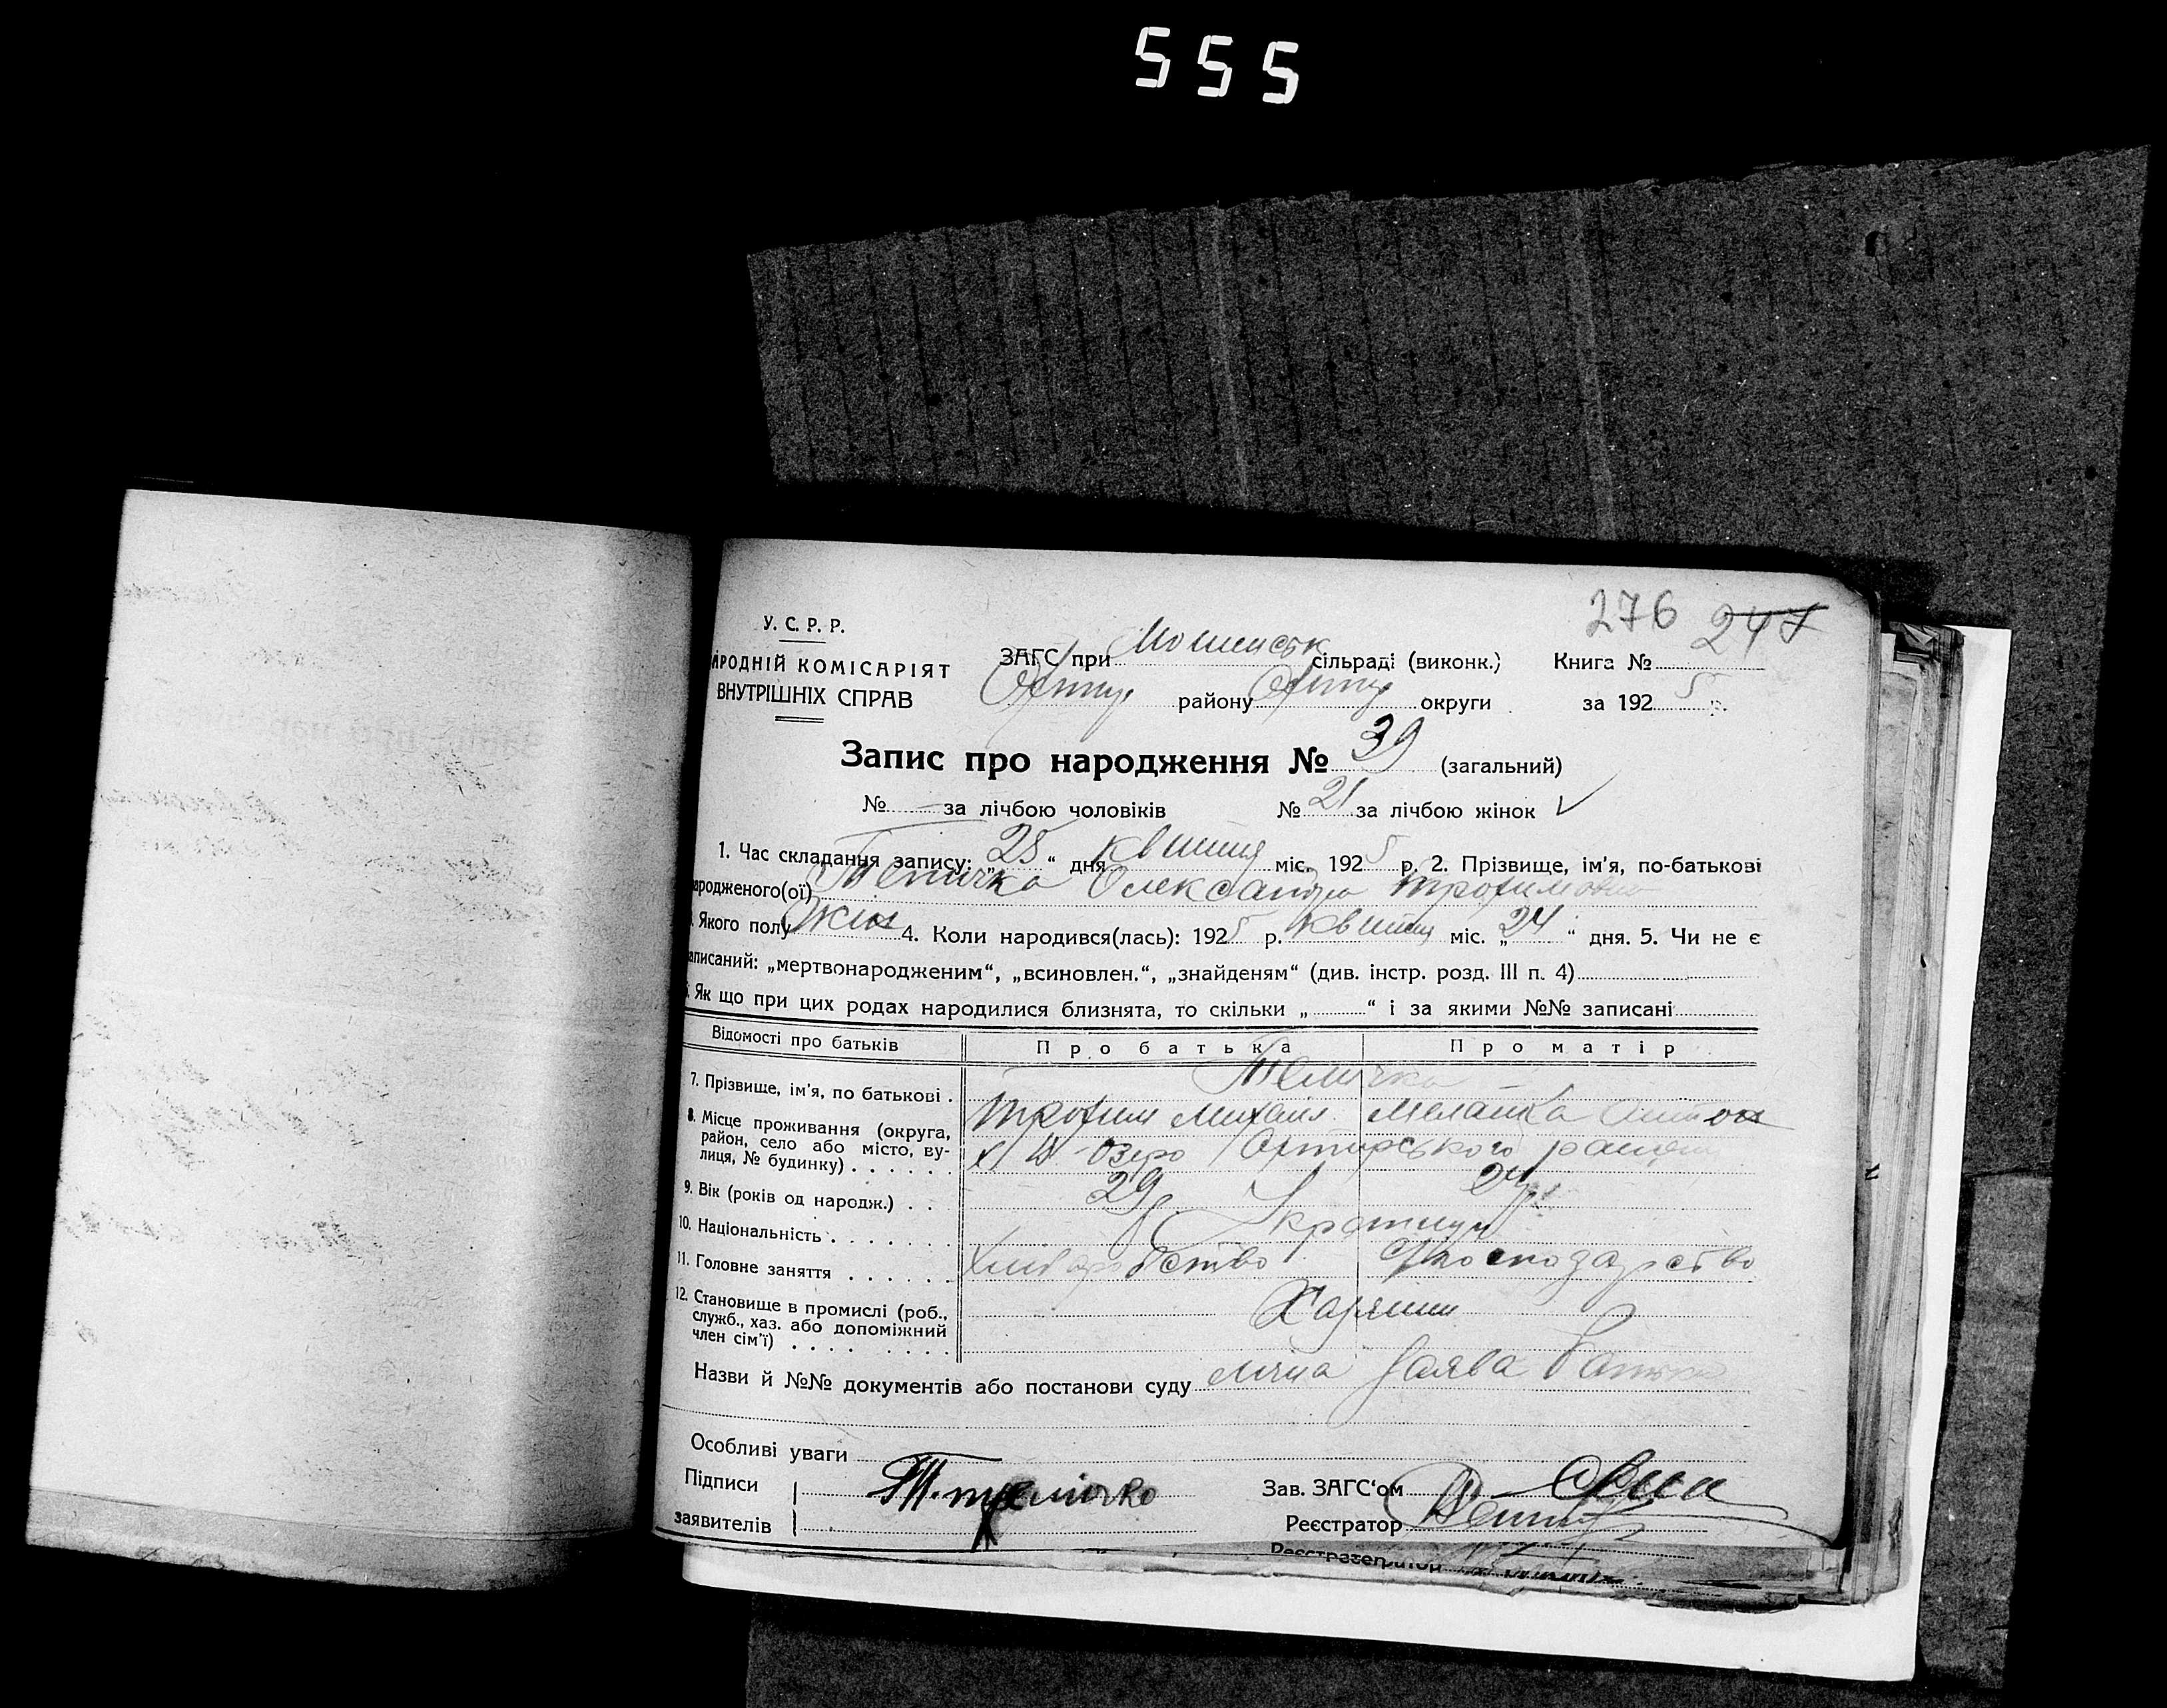 555
276 247
У. С. Р. Р.
АРОДНІЙ КОМІСАРІЯТ
ВНУТРІШНІХ СПРАВ
ЗАГС при сільраді (виконк.) Книга №
району округи за 1925 р.
Запис про народження № 39 (загальний)
№ — за лічбою чоловіків № 21 за лічбою жінок ✓
1. Час складання запису: „25“ дня квітня міс. 1925 р. 2. Прізвище, ім’я, по-батькові
ародженого(ої) Теличка Олександра Трофимовна
Якого полу жін 4. Коли народився(лась): 1925 р. квітня міс. „24“ дня. 5. Чи не є
аписаний: „мертвонародженим“, „всиновлен.“, „знайденям“ (див. інстр. розд. III п. 4)
Як що при цих родах народилися близнята, то скільки „ “ і за якими №№ записані
Відомості про батьків Про батька Про матір
7. Прізвище, ім’я, по батькові . Теличко
Трофим Михайл. Мелашка Антон
8. Місце проживання (округа,
район, село або місто, ву-
лиця, № будинку) . . . . . . Озеро району
9. Вік (років од народж.) . . 29 24
10. Національність . . . . . . .
11. Головне заняття . . . . . . Хліборобство господарство
12. Становище в промислі (роб.,
служб., хаз. або допоміжний
член сім’ї) . . . . . . . . Хазяїни
Назви й №№ документів або постанови суду лична заява батька
Особливі уваги
Підписи
заявителів
Зав. ЗАГС‘ом
Реєстратор